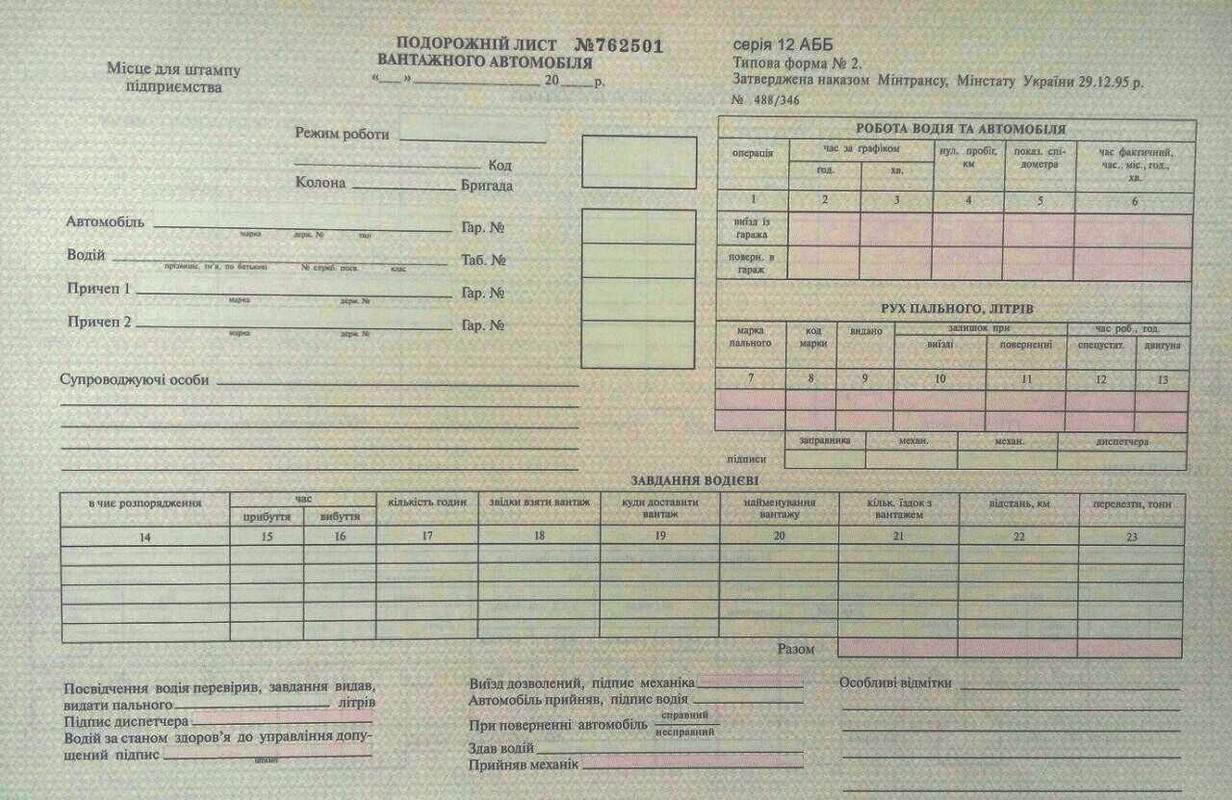 ПОДОРОЖНІЙ ЛИСТ №762501
ВАНТАЖНОГО АВТОМОБІЛЯ
«___»____________ 20____р.
Місце для штампу
підприємства
серія 12 АББ
Типова форма № 2.
Затверджена наказом Мінтрансу, Мінстату України 29.12.95 р.
№ 488/346
Режим роботи
Код
Колона ____________ Бригада
Автомобіль ____________ Гар. №
марка держ. № тип
Водій ____________ Таб. №
прізвище, ім'я, по батькові № служб. посв. клас
Причеп 1 ____________ Гар. №
марка держ. №
Причеп 2 ____________ Гар. №
марка держ. №
Супроводжуючі особи
РОБОТА ВОДІЯ ТА АВТОМОБІЛЯ
операція час за графіком нул. пробіг, км показ. спі-дометра час фактичний, час., міс., год., хв.
год. хв.
1 2 3 4 5 6
виїзд із гаража
поверн. в гараж
РУХ ПАЛЬНОГО, ЛІТРІВ
марка пального код марки видано залишок при час роб., год.
виїзді поверненні спецустат. двигуна
7 8 9 10 11 12 13
заправника механ. механ. диспетчера
підписи
ЗАВДАННЯ ВОДІЄВІ
в чиє розпорядження час кількість годин звідки взяти вантаж куди доставити вантаж найменування вантажу кільк. їздок з вантажем відстань, км перевезти, тонн
прибуття вибуття
14 15 16 17 18 19 20 21 22 23
Разом
Посвідчення водія перевірив, завдання видав,
видати пального____________ літрів
Підпис диспетчера
Водій за станом здоров'я до управління допу-
щений підпис
штамп
Виїзд дозволений, підпис механіка
Автомобіль прийняв, підпис водія
При поверненні автомобіль справний
несправний
Здав водій
Прийняв механік
Особливі відмітки